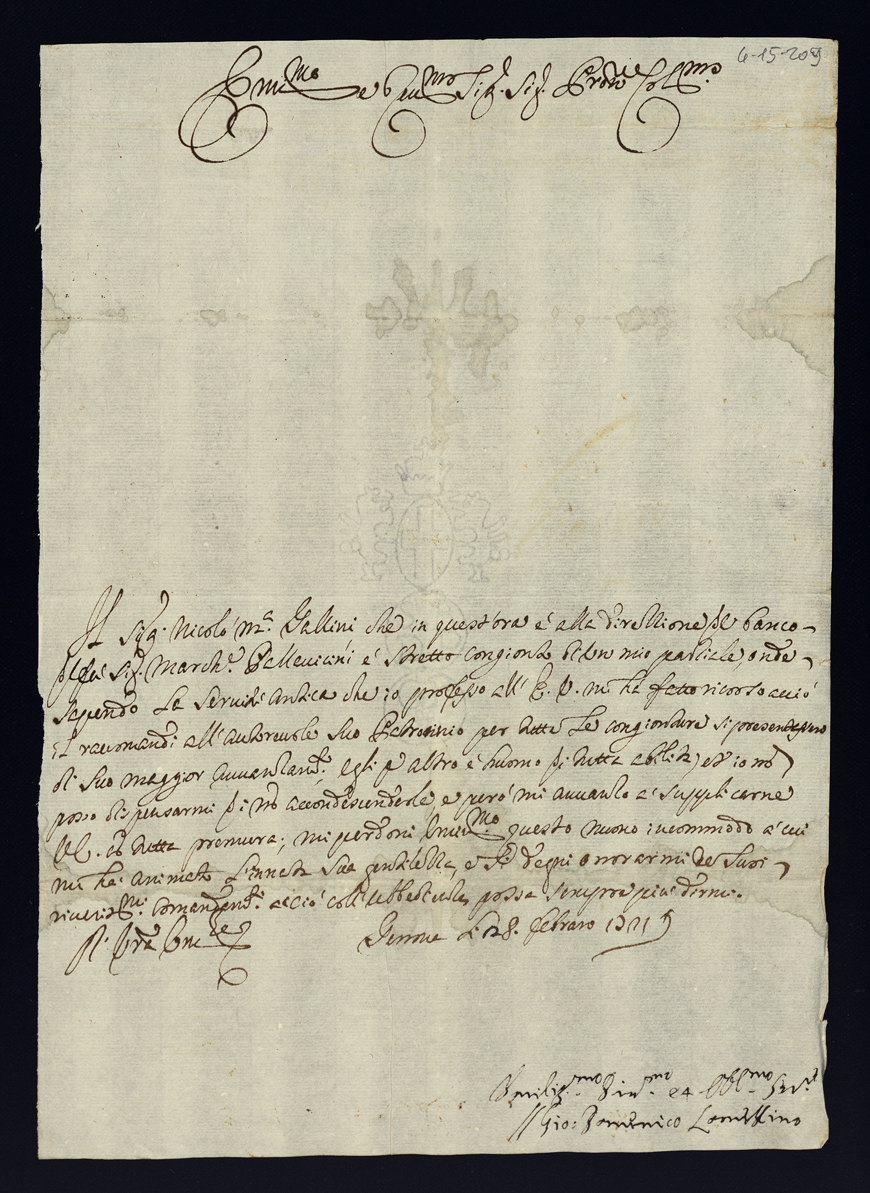 6-15-209
Emin.mo e Reu.mo Sig.r Sig.r Prone Col.mo
Il Sig.r Nicolò M.a Gallini che in quest'ora è alla direttione del banco
del fù Sig.r March.e Pallevicini è stretto congionto di un mio partiale, onde
sapendo la servitù antica che io professo all' E. V. mi ha fatto ricorso acciò
il raccomandi all'autorevole suo Patrocinio per tutte le congionture si presentassero
di suo maggior auuantag.o, egli p altro è huomo di tutta abilità, et io nō
posso dispensarmi di nō accondescenderle, e però mi auuanzo a' supplicarne
VE. cō tutta premura; mi perdoni Emin.mo questo nuouo incommodo a' cui
mi ha animato l'innata sua gentilezza, e si degni onorarmi de suoi
riueritmi. comandam.ti acciò coll'ubbedirla possa sempre più dirmi.
Di Vra Emze
Genoua li 28. febraro 1721
Vmiliss.mo Diu.mo ed Obl.mo Seru.r
Gio: Domenico Lomellino